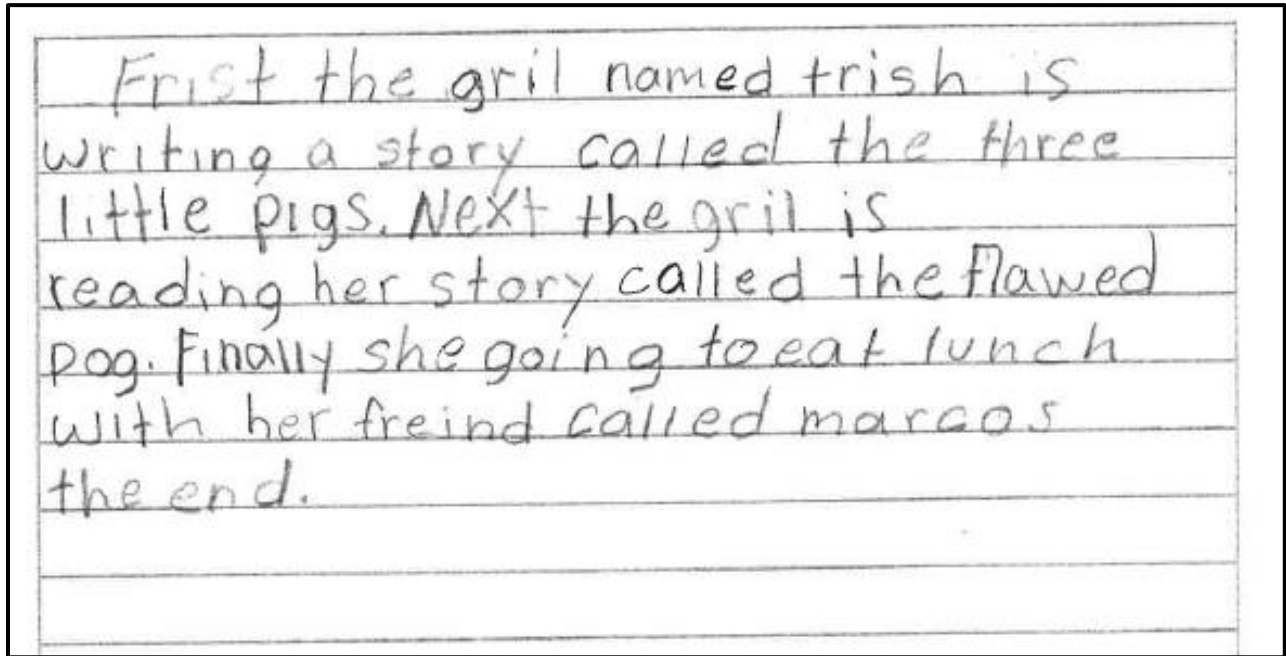 Frist the gril named trish is
writing a story called the three
little pigs. Next the gril is
reading her story called the flawed
pog. Finally she going to eat lunch
with her freind called marcos
the end.